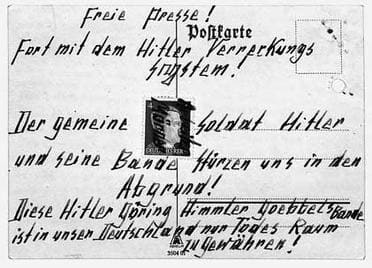 Freie Presse!
Postkarte
Fort mit dem Hitler Verrerkungs
System!
Der gemeine Soldat Hitler
und seine Bande Stürzen uns in den
Abgrund!
Diese Hitler Göring Himmler Goebbels Bande
ist in unser Deutschland nur Todes Raum
zu gewähren!